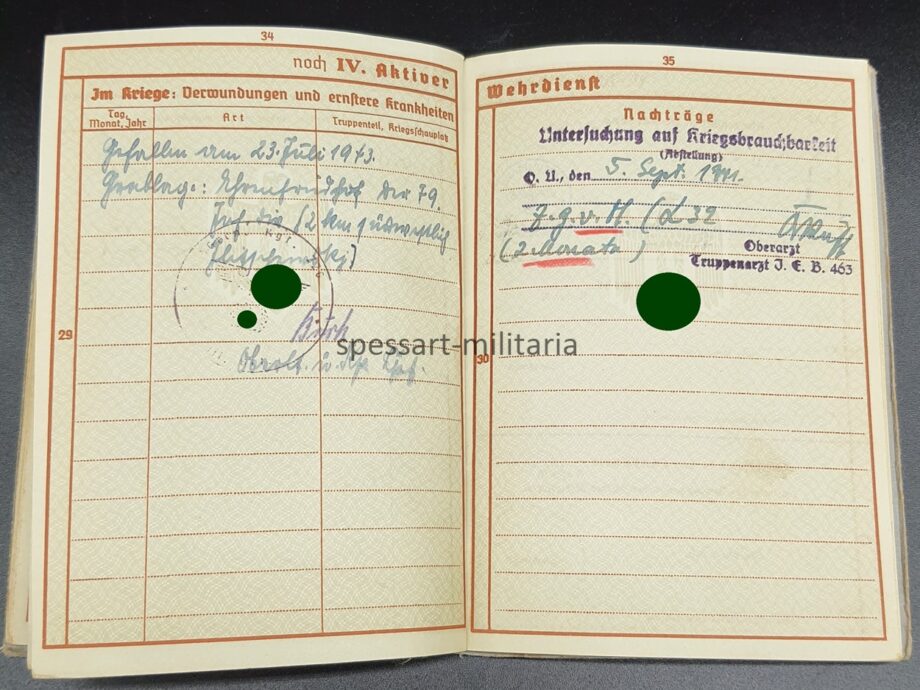 34
noch IV. Aktiver
Im Kriege: Verwundungen und ernstere Krankheiten
Tag, Monat, Jahr
Art
Truppenteil, Kriegsschauplatz
Gefallen am 23. Juli 1943.
Grablag.: Ehrenfriedhof der 79.
Inf. Div. (2 km südwestlich
29
Oberlt. u. Kp. Chef.
35
Wehrdienst
Nachträge
Untersuchung auf Kriegsbrauchbarkeit
(Abstellung)
O. U., den 5. Sept. 1941.
z. g. v. H. (L 32
(2 Monate)
Oberarzt
Truppenarzt J. E. B. 463
30
spessart-militaria